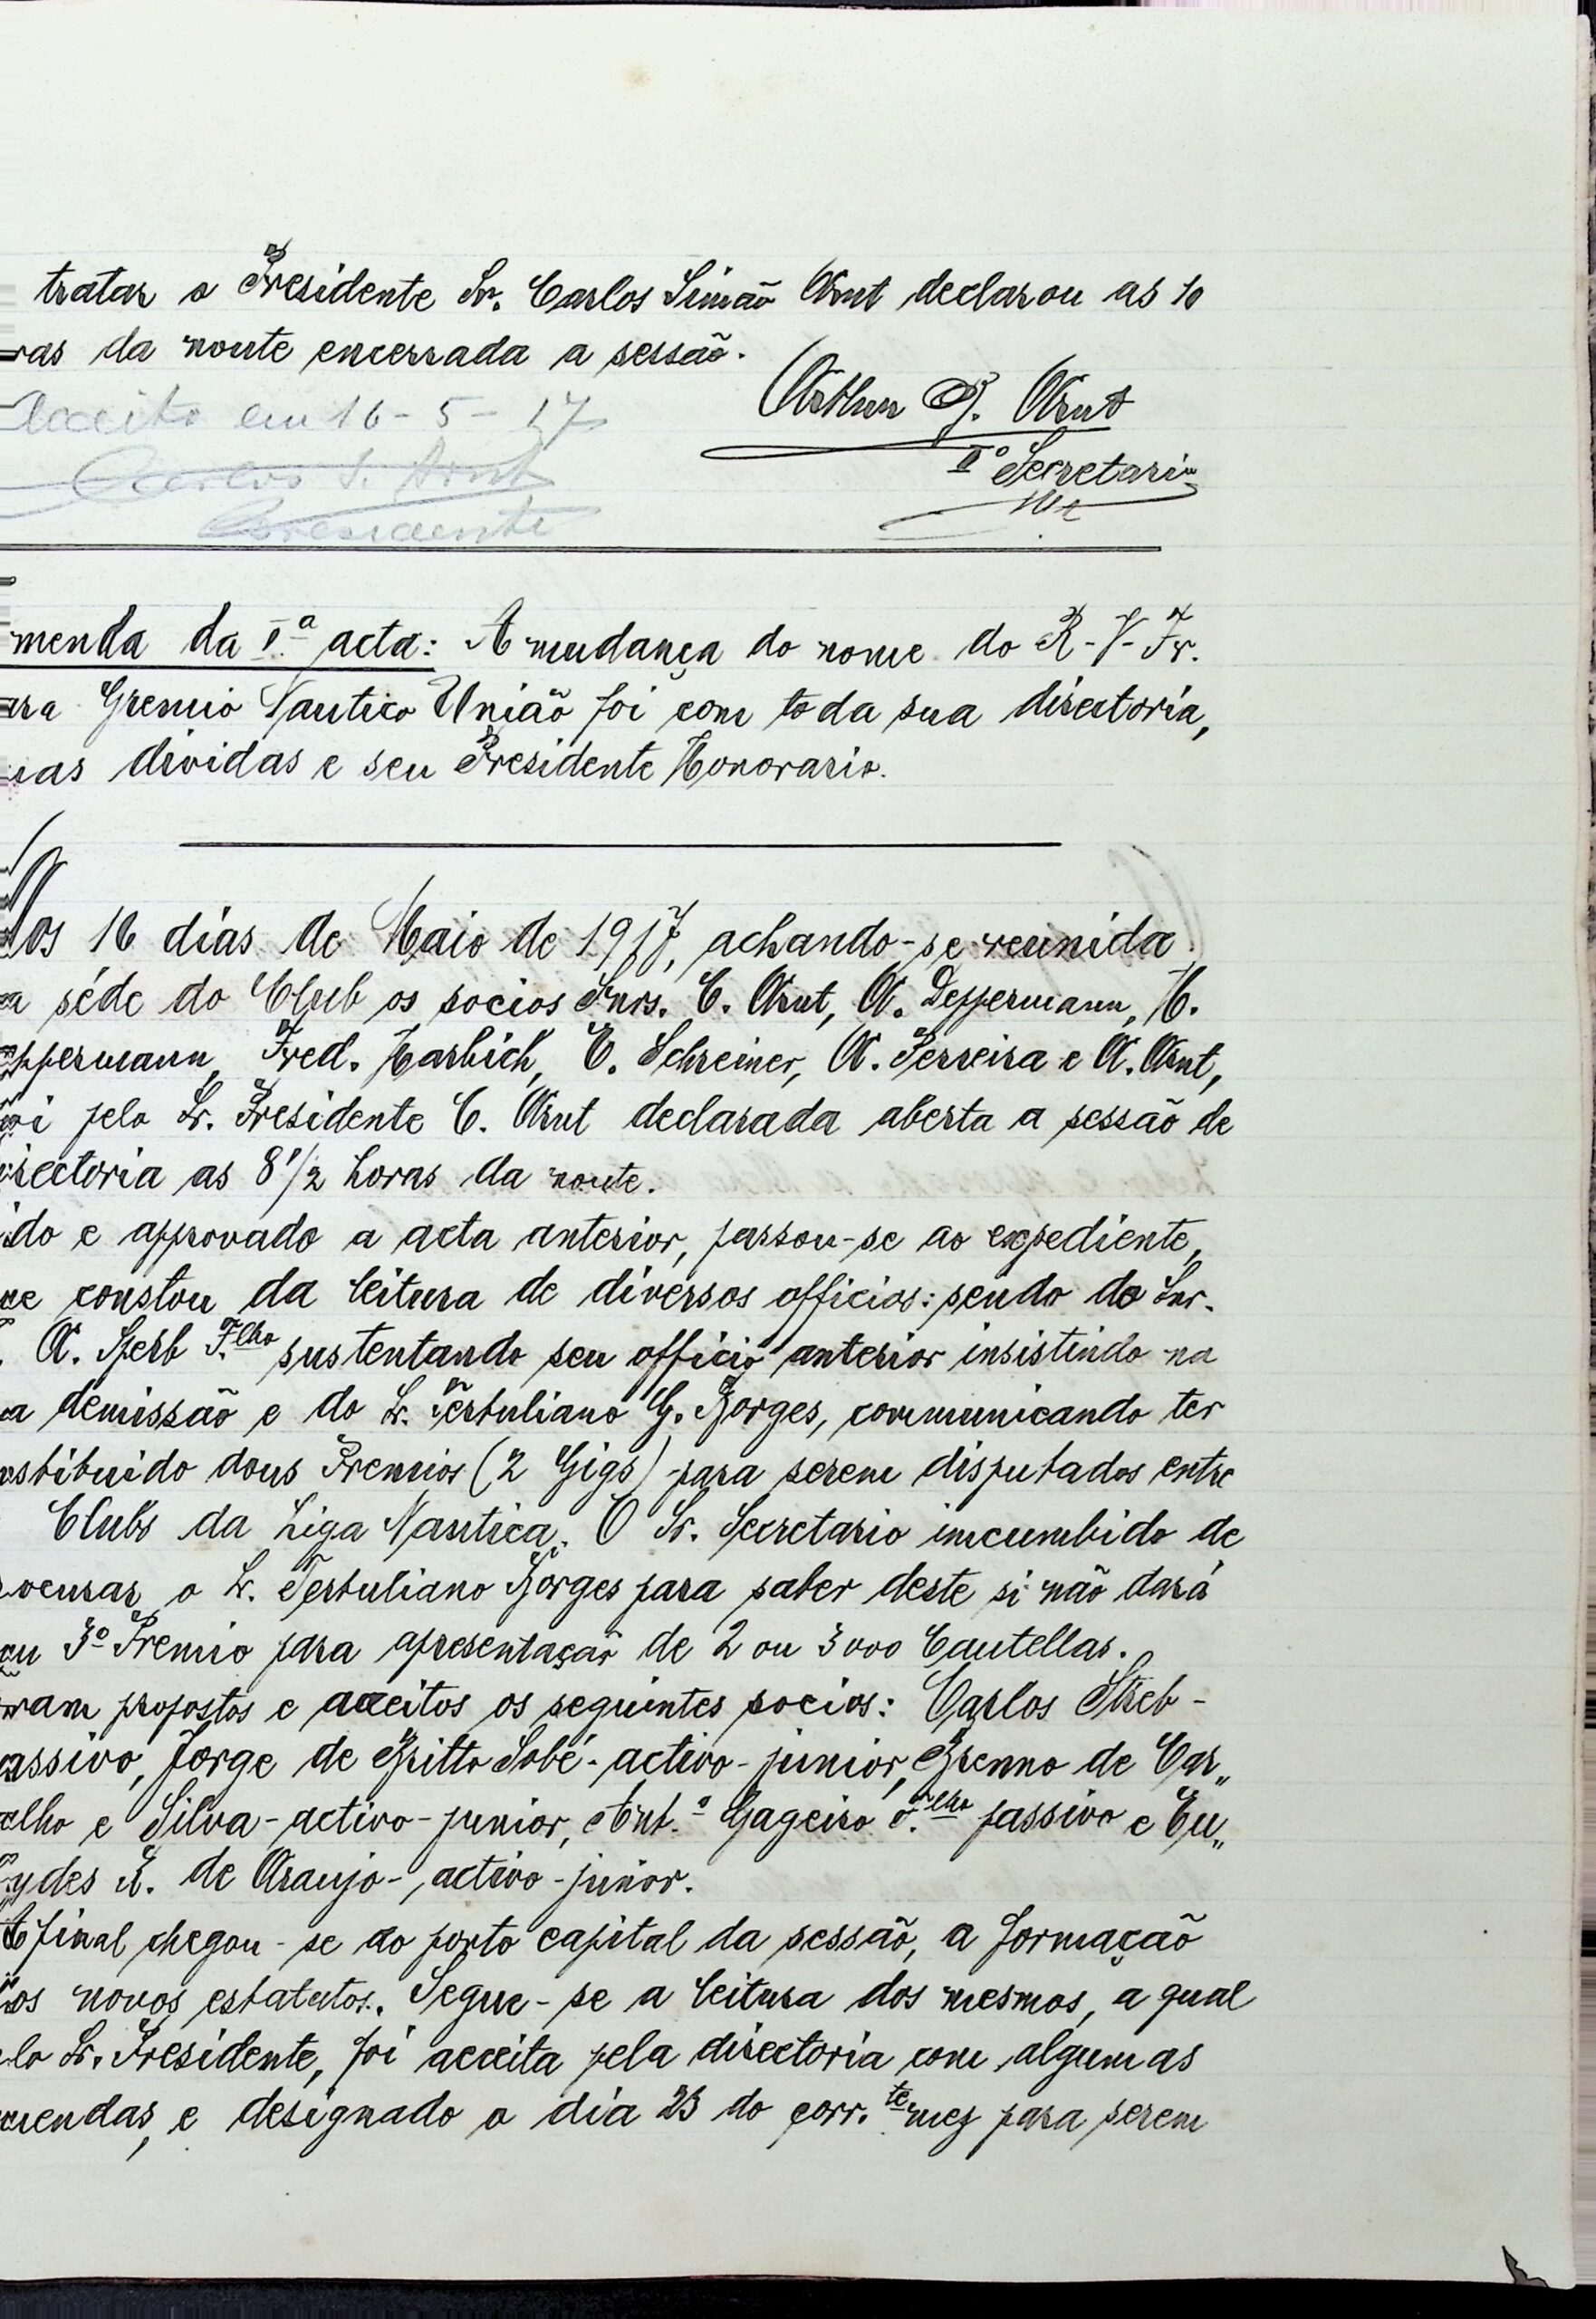 tratar o Presidente Sr. Carlos Simão Arnt declarou as 10
ras da noute encerrada a sessão.
Acceito em 16-5-17
Arthur B. Arnt
Carlos S. Arnt
IIº Secretario
Presidente
menda da Iª acta: A mudança do nome do R-V-Fr.
ara Gremio Nautico União foi com toda sua directoria,
uas dividas e seu Presidente Honorario.
Aos 16 dias de Maio de 1917, achando-se reunida
a séde do Club os socios Snrs. C. Arnt, A. Deppermann, H.
eppermann, Fred. Harbich, E. Schreiner, A. Ferreira e A. Arnt,
foi pelo Sr. Presidente C. Arnt declarada aberta a sessão de
irectoria as 8 1/2 horas da noute.
ido e approvado a acta anterior, passou-se ao expediente,
ue constou da leitura de diversos officios: sendo do Snr.
A. Sperb F.lho sustentando seu officio anterior insistindo na
a demissão e do Sr. Tertuliano G. Borges, communicando ter
nstituido dous Premios (2 Gigs) para serem disputados entre
Clubs da Liga Nautica. O Sr. Secretario imcumbido de
rocurar o Sr. Tertuliano Borges para saber deste si não dará
um 3º Premio para apresentação de 2 ou 3000 Cautellas.
oram propostos e acceitos os seguintes socios: Carlos Streb-
assivo, Jorge de Britto Sobé-activo-junior, Brenno de Car„
alho e Silva-activo-junior, Ant.º Gageiro F.lho passivo e Eu„
lydes R. de Araujo-, activo-junior.
Afinal chegou-se ao ponto capital da sessão, a formação
dos novos estatutos. Segue-se a leitura dos mesmos, a qual
elo Sr. Presidente, foi acceita pela directoria com algumas
mendas, e designado o dia 23 do corr.te mez para serem